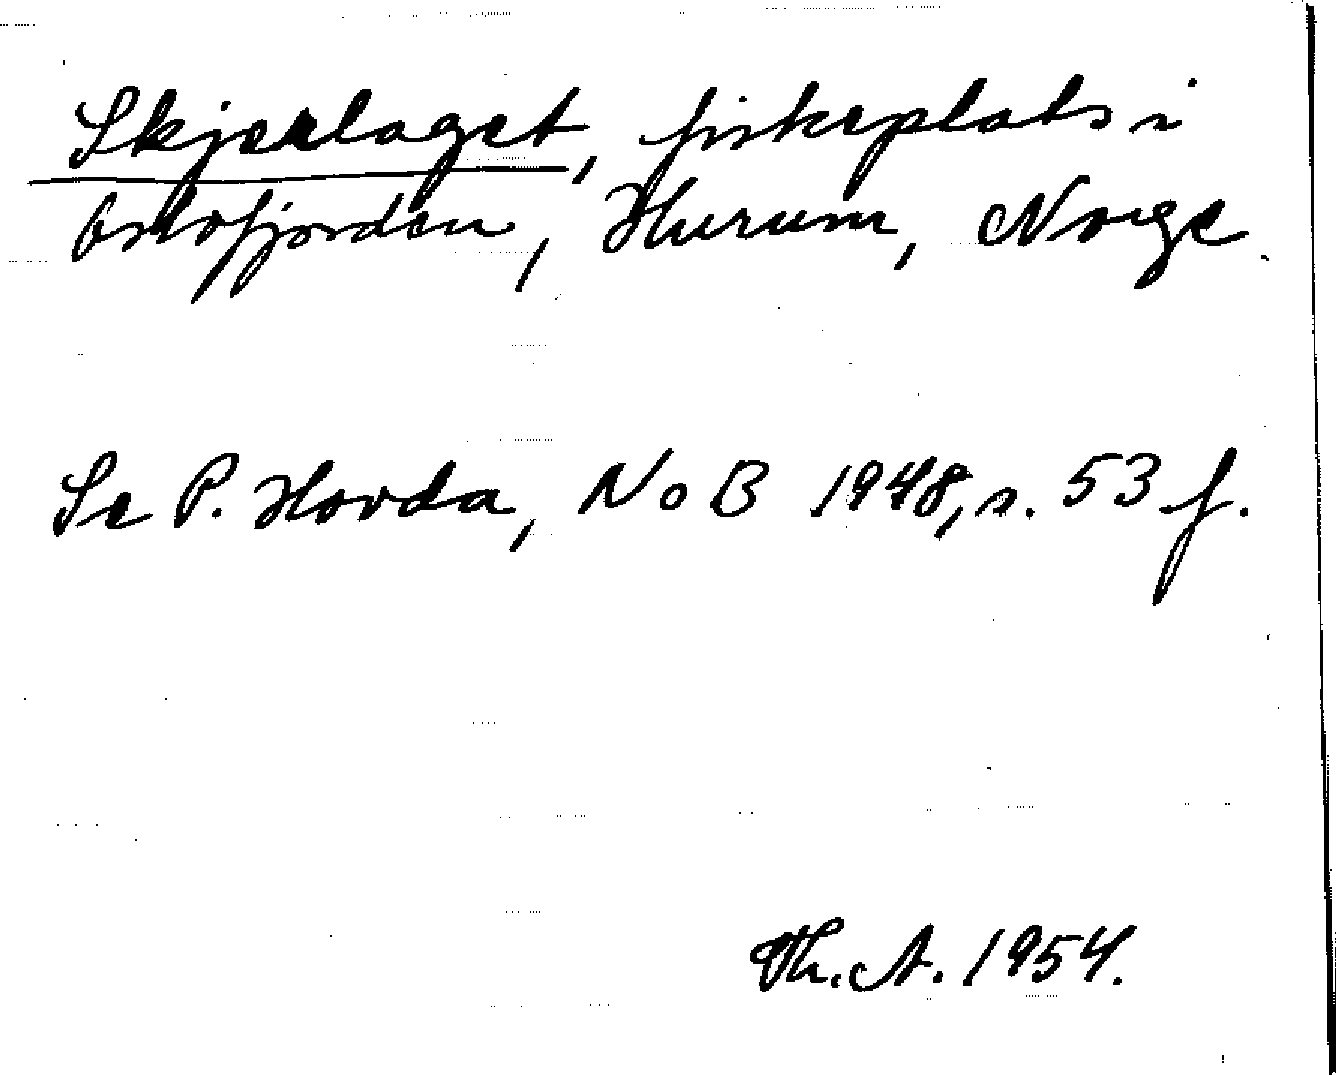 Skjerlaget, fiskeplats i
Oslofjorden, Hurum, Norge
Se P. Hovda, NoB 1948, s. 53 f.
Th. A. 1954.